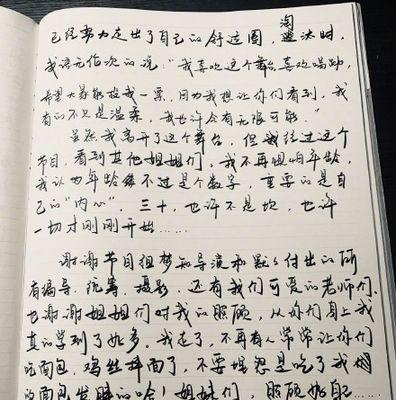 已经努力走出了自己的舒适圈,淘汰时,
我语无伦次的说:"我喜欢这个舞台,喜欢唱跳,
希望大家能投我一票,因为我想让你们看到,我
有的不只是温柔,我也许会有无限可能。"
虽然我离开了这个舞台,但我经过这个
节目,看到其他姐姐们,我不再惧怕年龄,
我认为年龄不过是个数字,重要的是自
己的"内心"。三十,也许不是坎,也许
一切才刚刚开始……
谢谢节目组梦知导演和默默付出的所
有编导、统筹、摄影,还有我们可爱的老师们,
也谢谢姐姐们对我的照顾,从你们身上我
真的学到了好多。我走了,不再有人常常让你们
吃面包,鸡丝拌面了,不要埋怨是吃了我
的面包发胖的哈!姐妹们,照顾好自己……